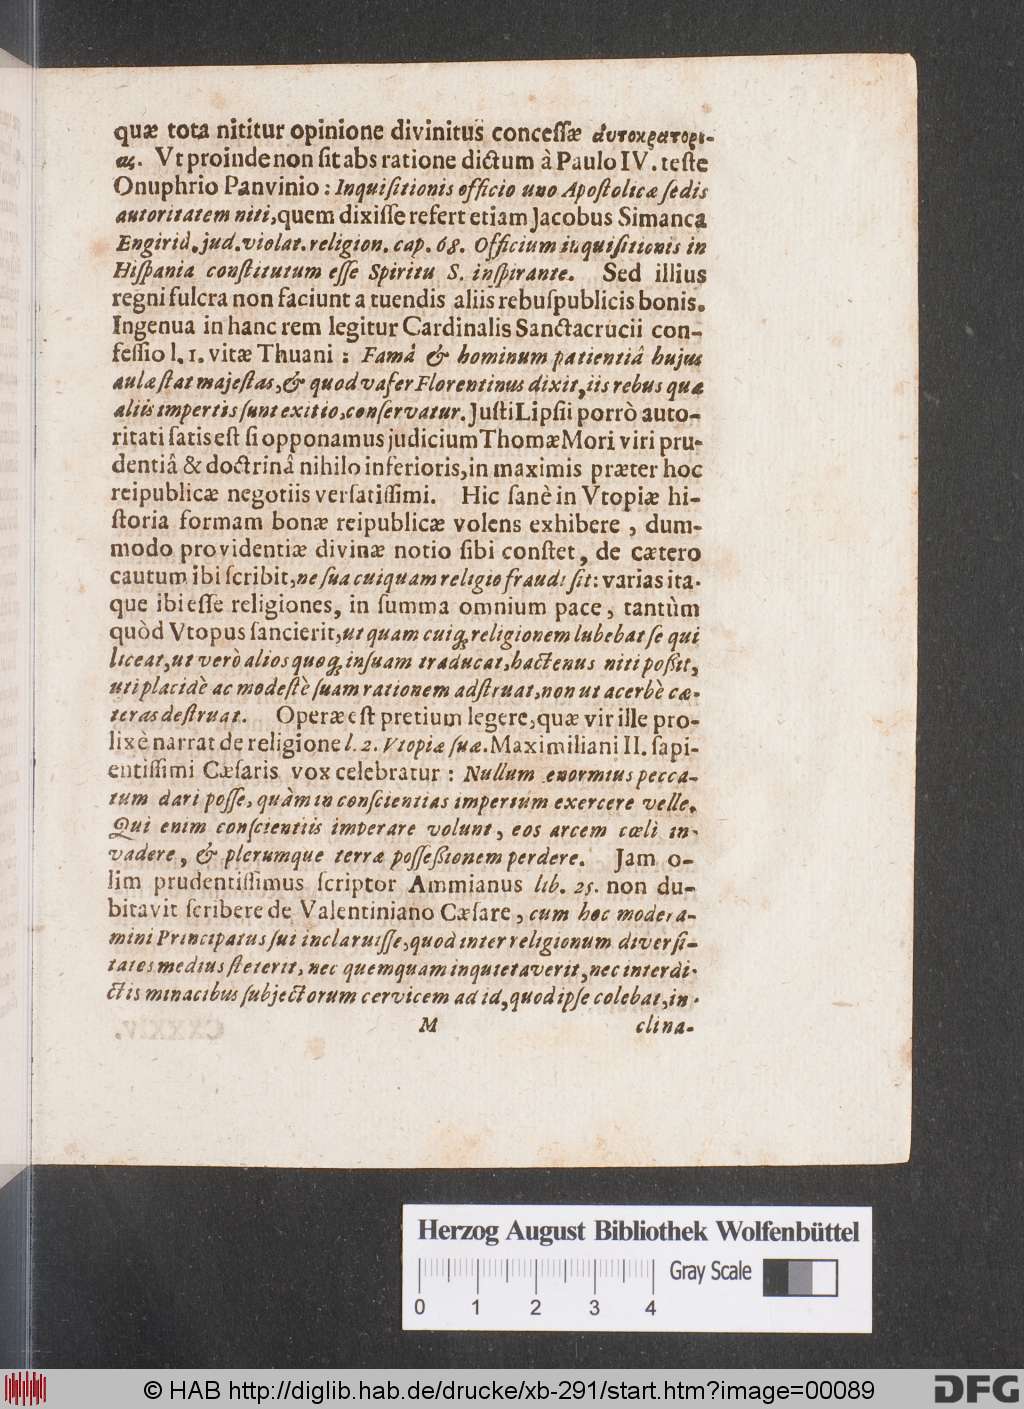 quæ tota nititur opinione divinitus conceſſæ ἀυτοκρατορι-
ας. Vt proinde non ſit abs ratione dictum à Paulo IV. teſte
Onuphrio Panvinio: Inquiſitionis officio uno Apoſtolicæ ſedis
autoritatem niti, quem dixiſſe refert etiam Jacobus Simanca
Engirid. jud. violat. religion. cap. 68. Officium inquiſitionis in
Hiſpania conſtitutum eſſe Spiritu S. inſpirante. Sed illius
regni fulcra non faciunt a tuendis aliis rebuſpublicis bonis.
Ingenua in hanc rem legitur Cardinalis Sanctacrucii con-
feſſio l. 1. vitæ Thuani: Famâ & hominum patientiâ hujus
aulæ ſtat majeſtas, & quod vafer Florentinus dixit, iis rebus quæ
aliis impertis ſunt exitio, conſervatur. Juſti Lipſii porrò auto-
ritati ſatis eſt ſi opponamus judicium Thomæ Mori viri pru-
dentiâ & doctrinâ nihilo inferioris, in maximis præter hoc
reipublicæ negotiis verſatiſſimi. Hic ſanè in Vtopiæ hi-
ſtoria formam bonæ reipublicæ volens exhibere, dum-
modo providentiæ divinæ notio ſibi conſtet, de cætero
cautum ibi ſcribit, ne ſua cuiquam religio fraudi ſit: varias ita-
que ibi eſſe religiones, in ſumma omnium pace, tantùm
quòd Vtopus ſancierit, ut quam cuiq; religionem lubebat ſequi
liceat, ut verò alios quoq; in ſuam traducat, hactenus niti poßit,
uti placidè ac modeſtè ſuam rationem adſtruat, non ut acerbè cæ-
teras deſtruat. Operæ eſt pretium legere, quæ vir ille pro-
lixè narrat de religione l. 2. Vtopiæ ſuæ. Maximiliani II. ſapi-
entiſſimi Cæſaris vox celebratur: Nullum enormius pecca-
tum dari poſſe, quàm in conſcientias imperium exercere velle.
Qui enim conſcientiis imperare volunt, eos arcem cœli in-
vadere, & plerumque terræ poſſeßionem perdere. Jam o-
lim prudentiſſimus ſcriptor Ammianus lib. 25. non du-
bitavit ſcribere de Valentiniano Cæſare, cum hoc modera-
mini Principatus ſui inclaruiſſe, quod inter religionum diverſi-
tates medius ſteterit, nec quemquam inquietaverit, nec interdi-
ctis minacibus ſubjectorum cervicem ad id, quod ipſe colebat, in-
M clina-
Herzog August Bibliothek Wolfenbüttel
Gray Scale
0 1 2 3 4
© HAB http://diglib.hab.de/drucke/xb-291/start.htm?image=00089
DFG